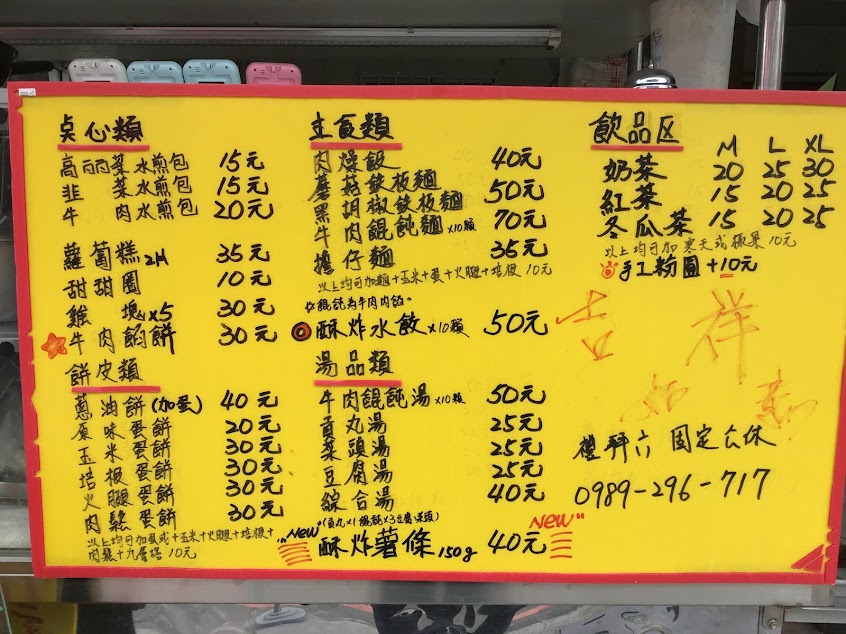 点心類
高丽菜水煎包 15元
韭菜水煎包 15元
牛肉水煎包 20元
蘿蔔糕2片 35元
甜甜圈 10元
雞塊x5 30元
牛肉餡餅 30元
餅皮類
蔥油餅(加蛋) 40元
原味蛋餅 20元
玉米蛋餅 30元
培根蛋餅 30元
火腿蛋餅 30元
肉鬆蛋餅 30元
以上均可加蛋或+玉米+火腿+培根+
肉鬆+九層塔 10元
主食類
肉燥飯 40元
蘑菇鉄板麵
黑胡椒鉄板麵 50元
牛肉餛飩麵x10顆 70元
擔仔麵 35元
以上均可加麵+玉米+蛋+火腿+培根 10元
☆餛飩為牛肉內餡。
◎酥炸水餃x10顆 50元
湯品類
牛肉餛飩湯x10顆 50元
貢丸湯 25元
菜頭湯 25元
豆腐湯 25元
綜合湯 40元
(貢丸x1餛飩x3豆腐菜頭)
"NEW" 酥炸薯條150g 40元 NEW"
飲品区
M L XL
奶茶 20 25 30
紅茶 15 20 25
冬瓜茶 15 20 25
以上均可加寒天或椰果10元
手工粉圓+10元
吉祥
如意
禮拜六固定公休
0989-296-717